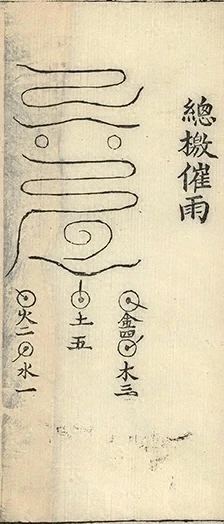 總檄催雨
金四
木三
土五
火二
水一